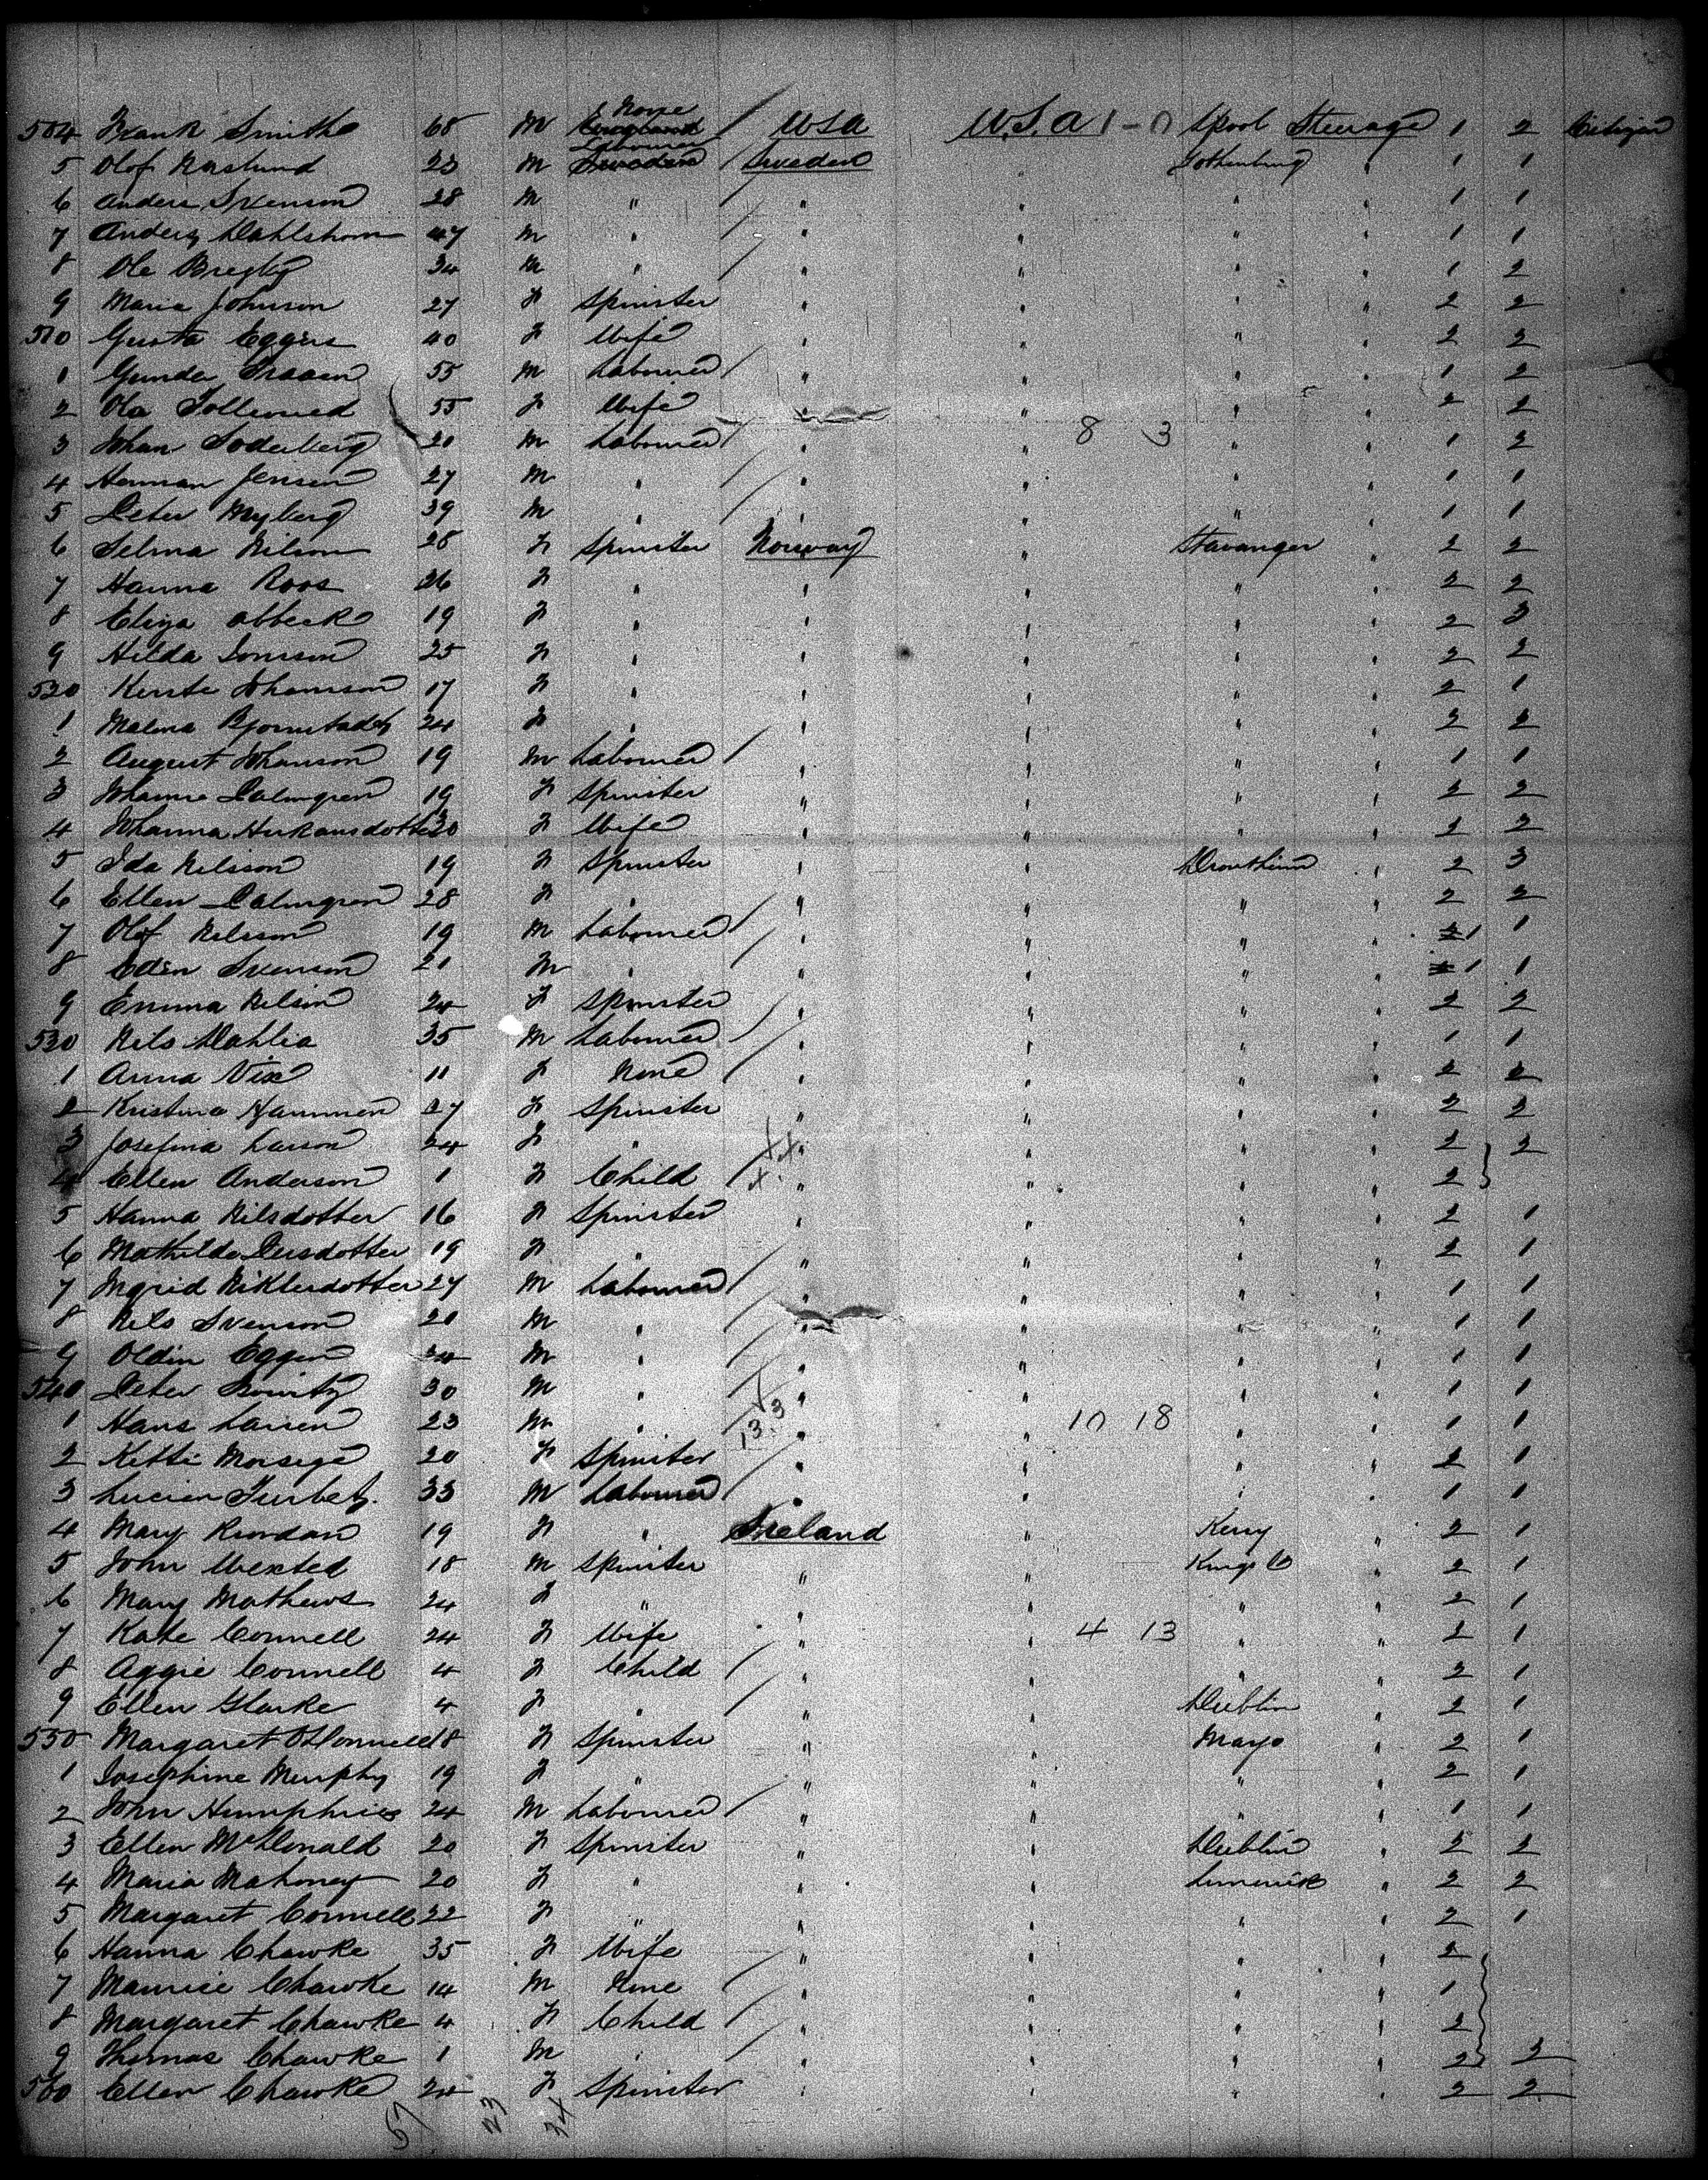 None
504 Frank Smith 68 M England / USA U.S.A 1-0 Lpool Steerage 1 2 Citizen
Labourer
5 Olof Naslund 23 M Sweden / Sweden " Gothenburg " 1 1
6 Anders Svenson 28 M " / " " " " 1 1
7 Anders Dahlshom 47 M " / " " " " 1 1
8 Ole 34 M " / " " " " 1 2
9 Maria Johnson 27 F Spinster " " " " 2 2
510 Gusta Eggers 40 F Wife " " " " 2 2
1 Gunder 55 M Labourer / " " " " 1 2
2 Ola 55 F Wife " " " " 2 2
3 Johan Soderberg 20 M Labourer / " " 8 3 " " 1 2
4 Herman Jensen 27 M " / " " " " 1 1
5 Peter Myberg 39 M " / " " " " 1 1
6 Selma Nilson 28 F Spinster Norway " Stavanger " 2 2
7 Hanna Roos 26 F " " " " " 2 2
8 Eliza Abbeck 19 F " " " " " 2 3
9 Hilda 25 F " " " " " 2 2
520 Kerste Johanson 17 F " " " " " 2 1
1 Malena 24 F " " " " " 2 2
2 August Johanson 19 M Labourer / " " " " 1 1
3 Johanna Palmgren 19 F Spinster " " " " 2 2
4 Johanna 30 F Wife " " " " 2 2
5 Ida Nilsson 19 F Spinster " " Drontheim " 2 3
6 Ellen Palmgren 28 F " " " " " 2 2
7 Olof Nilsson 19 M Labourer / " " " " 1 1
8 Svenson 21 M " / " " " " 1 1
9 Emma Nilson 24 F Spinster " " " " 2 2
530 Nils Dahlia 35 M Labourer / " " " " 1 1
1 Anna Nix 11 F None / " " " " 2 2
2 Kristina 27 F Spinster " " " " 2 2
3 Josefina Larson 24 F " " " " " 2 2
4 Ellen Anderson 1 F Child / " " " " 2
5 Hanna Nilsdotter 16 F Spinster " " " " 2 1
6 Mathilda Persdotter 19 F " " " " " 2 1
7 Ingrid 27 M Labourer / " " " " 1 1
8 Nils Svenson 20 M " / " " " " 1 1
9 Oldin Eggen 34 M " / " " " " 1 1
540 Peter 30 M " / " " " " 1 1
1 Hans Larsen 23 M " / 13.3 " " 10 18 " " 1 1
2 Kitti 20 F Spinster " " " " 2 1
3 Lucien 33 M Labourer / " " " " 1 1
4 Mary Riordan 19 F " Ireland " Kerry " 2 1
5 John Wexted 18 M Spinster " " Kings Co " 2 1
6 Mary Mathews 24 F " " " " " 2 1
7 Kate Connell 24 F Wife " " 4 13 " " 2 1
8 Aggie Connell 4 F Child / " " " " 2 1
9 Ellen Clarke 4 F " / " " Dublin " 2 1
550 Margaret O'Connell 18 F Spinster " " Mayo " 2 1
1 Josephine Murphy 19 F " " " " " 2 1
2 John Humphries 24 M Labourer / " " " " 1 1
3 Ellen McDonald 20 F Spinster " " Dublin " 2 2
4 Maria Mahoney 20 F " " " Limerick " 2 2
5 Margaret Connell 22 F " " " " " 2 1
6 Hanna Chawke 35 F Wife " " " " 2
7 Maurice Chawke 14 M None / " " " " 1
8 Margaret Chawke 4 F Child / " " " " 2
9 Thomas Chawke 1 M " / " " " " 2 3
560 Ellen Chawke 24 F Spinster " " " " 2 2
57 23 34